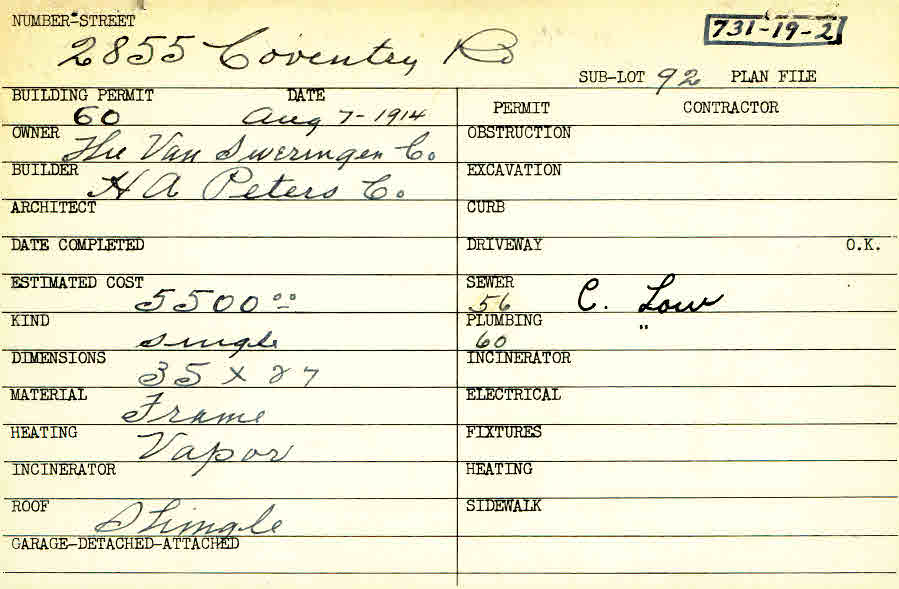 NUMBER-STREET
2855 Coventry Rd
731-19-2
SUB-LOT 92 PLAN FILE
BUILDING PERMIT DATE
60 Aug 7-1914
PERMIT CONTRACTOR
OWNER
The Van Sweringen Co.
BUILDER
H A Peters Co.
ARCHITECT
DATE COMPLETED
ESTIMATED COST
5500.00
KIND
single
DIMENSIONS
35 x 27
MATERIAL
Frame
HEATING
Vapor
INCINERATOR
ROOF
Shingle
GARAGE-DETACHED-ATTACHED
OBSTRUCTION
EXCAVATION
CURB
DRIVEWAY O.K.
SEWER
56 C. Low
PLUMBING
60 "
INCINERATOR
ELECTRICAL
FIXTURES
HEATING
SIDEWALK